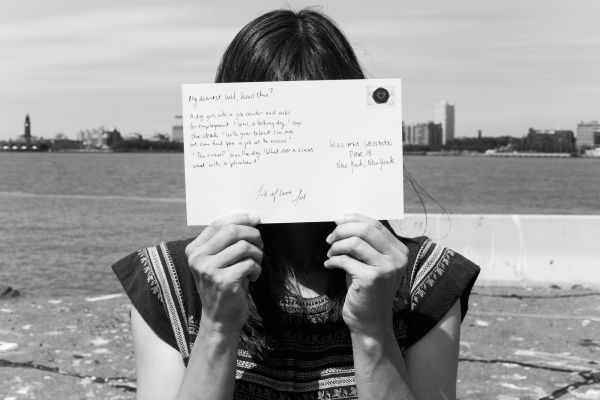 My dearest Will, how's this?
A dog goes into a job center and asks
for employment. "Wow, a talking dog," says
the clerk. "With your talent I'm sure
we can find you a job at the circus."
"The circus?" says the dog. "What does a circus
want with a plumber?"
Lots of love
WILLIAM
PIER 18
New York, New York